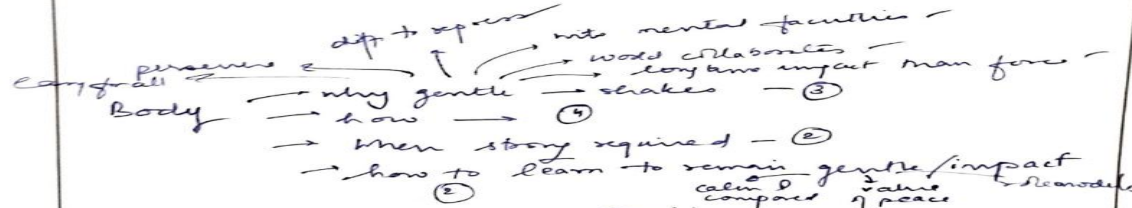 diff to repress
into mental faculties -
world collaborates -
long time impact than force -
persevere
easy for all
Body → why gentle → shakes - ③
→ how → ④
→ when strong required - ②
→ how to learn to remain gentle/impact
② calm & composed value of peace